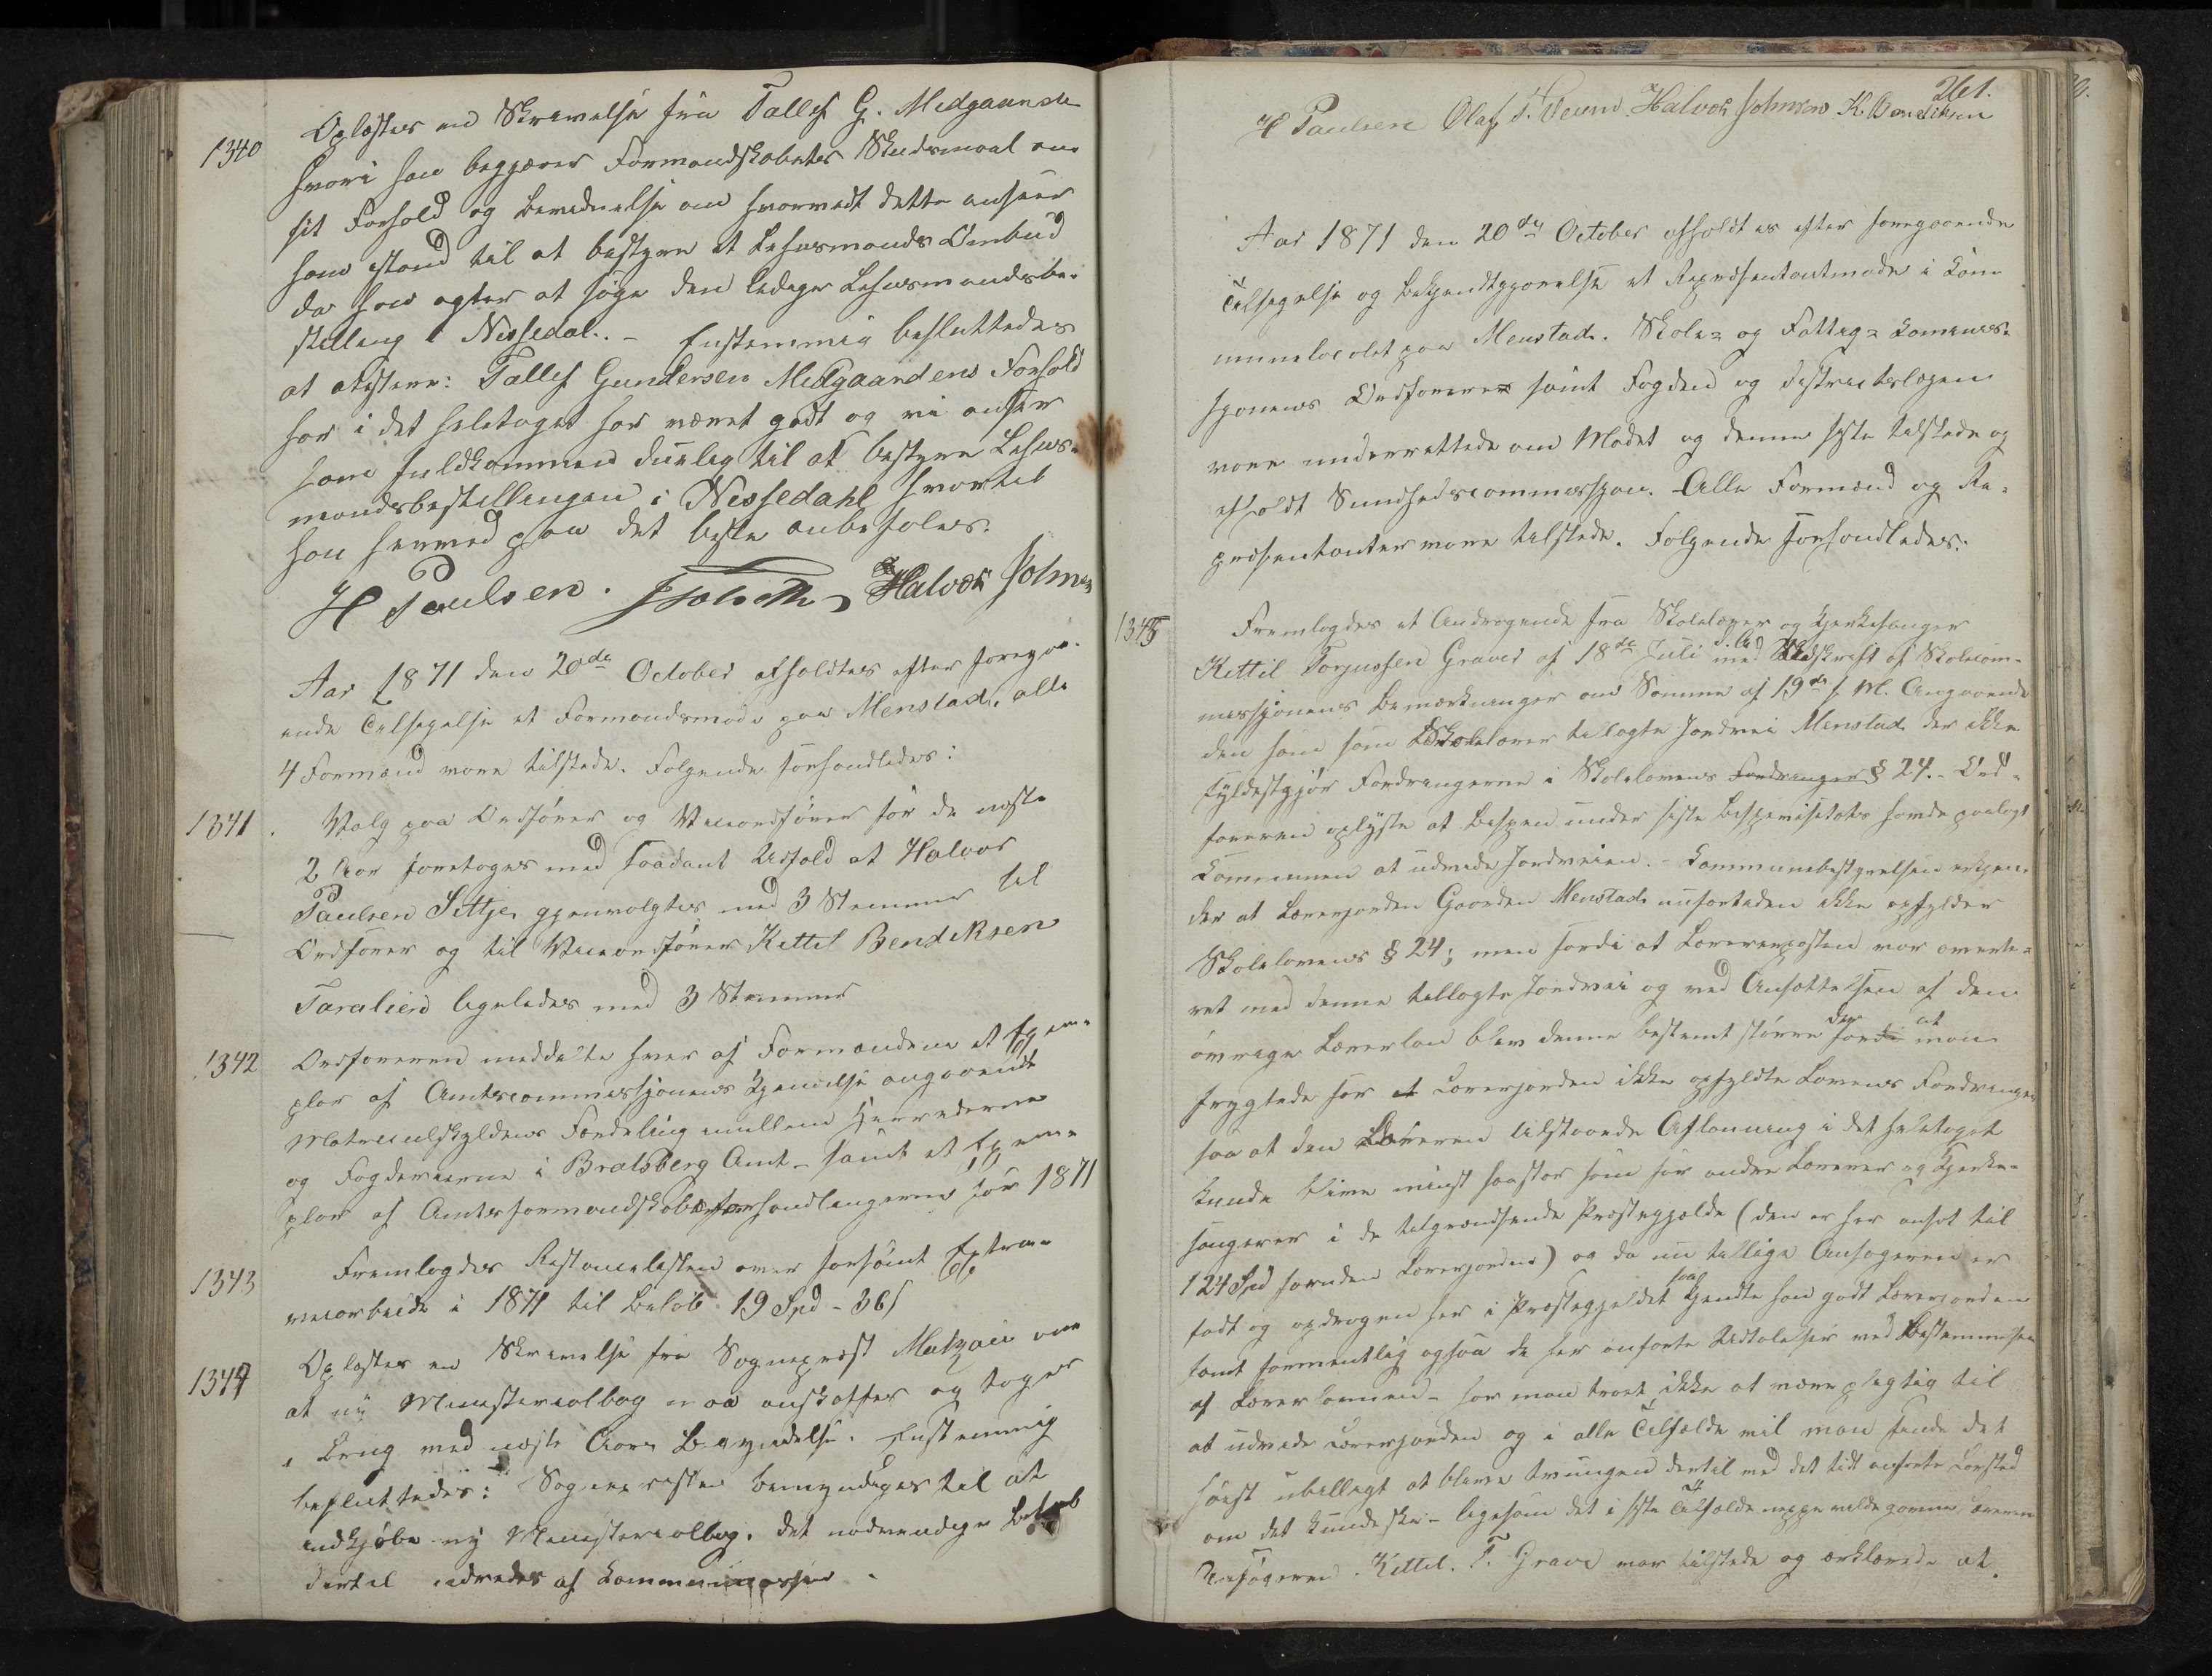 1340 Oplæstes en Skrivelse fra Tallef G. Midgaarden
hvori han begjærer Formandskabets Skudsmaal om
sit Forhold og Bevidnelse om hvorvidt dette anseer
ham istand til at bestyre et Lehnsmands Ombud
da han agter at søge den ledige Lehnsmandsbe-
stilling i Nissedal. - Enstemmig besluttedes
at atestere: Tallef Gundersen Midgaardens Forhold
har i det heletaget har været godt og vi anser
ham fuldkommen duelig til at bestyre Lehns-
mandsbestillingen i Nissedahl hvortil
han hermed paa det beste anbefales.
H Paulsen. Halvor Johnsen
Aar 1871 den 20de October afholdtes efter foregaa-
ende Tilsigelse et Formandsmøde paa Menstad. alle
4 Formænd vare tilstede. Følgende forhandledes:
1341. Valg paa Ordfører og Viceordfører for de neste
2 Aar foretoges med saadant Udfald at Halvor
Paulsen Sittje, gjenvalgtes med 3 Stemmer til
Ordfører og til Viceordfører Kittil Bendiksen
Taralien ligeledes med 3 Stemmer
1342 Ordføreren meddelte hver af Formændene et Exem-
plar af Amtscommissionens Kjendelse angaaende
Matriculskyldens Fordeling mellem Herrederne
og Fogderierne i Bratsberg Amt - samt et Exem-
plar af Amtsformandskabsforhandlingerne for 1871
1343 Fremlagdes Restancelisten over forsømt Extra-
veiarbeide i 1871 til Beløb 19 Spd - 36 s
1344 Oplæstes en Skrivelse fra Sogneprest Malzau om
at ny Ministerialbog maa anskaffes og tages
i Brug med næste Aars Begyndelse. Enstemmig
besluttedes: Sognepresten bemyndiges til at
indkjøbe ny Ministerialbog. det nødvendige Beløb
dertil udredes af Kommunecassen.
261.
H Paulsen Olaf T. Veum Halvor Johnsen K Bendiksen
Aar 1871 den 20de October afholdtes efter foregaaende
Tilsigelse og Bekjendtgjørelse et Representantmøde i Kom-
munelocalet paa Menstad. Skole- og Fattig- Kommis-
sjonens Ordførere samt Fogden og Distriktslægen
vare underrettede om Mødet og denne siste tilstede og
afholdt Sundhedscommission. Alle Formænd og Re-
presentanter vare tilstede. Følgende forhandledes:
1345 Fremlagdes et Andragende fra Skolelærer og Kjerkesanger
Kittil Torjussen Graver af 18de Juli d. A. med Paaskrift af Skolecom-
missjonens Bemerkninger om Samme af 19de f. M. Angaaende
den ham som Skolelærer tilagte Jordvei Menstad. der ikke
fyldestgjør Fordringerne i Skolelovens Fordringer § 24. - Ord-
føreren oplyste at Bispen under siste Bispevisitats havde paalagt
Kommunen at udvide Jordveien. - Kommunebestyrelsen erkjen-
der at Lærerjorden Gaarden Menstad nufortiden ikke opfylder
Skolelovens § 24; men fordi at Lærerposten var averte-
ret med denne tillagte Jordvei og ved Ansættelsen af den
øvrige Lærerløn blev denne bestemt større der fordi at man
frygtede for at Lærerjorden ikke opfyldte Lovens Fordringer
saa at den Læreren tilstaaede Aflønning i det heletaget
kunde blive minst saastor som for andre Lærere og Kjerke-
sangere i de tilgrændsende Præstegjælde (den er her ansat til
124 Spd foruden Lærerjorden) og da nu tillige Ansøgeren er
født og opdragen her i Præstegjeldet saa kjendte han godt Lærerjorden
samt formentlig ogsaa de her anførte Udtalelser ved Bestemmelsen
af Lærerlønnen - har man troet ikke at være pligtig til
at udvide Lærerjorden og i alle Tilfælde vil man finde det
høist ubilligt at blive tvungen dertil med det tidt anførte Læsted
om det kunde ske - ligesom det i siste Tilfælde neppe vilde gavne Læreren
Ansøgeren. Kittil. T. Graver var tilstede og erklærede at.